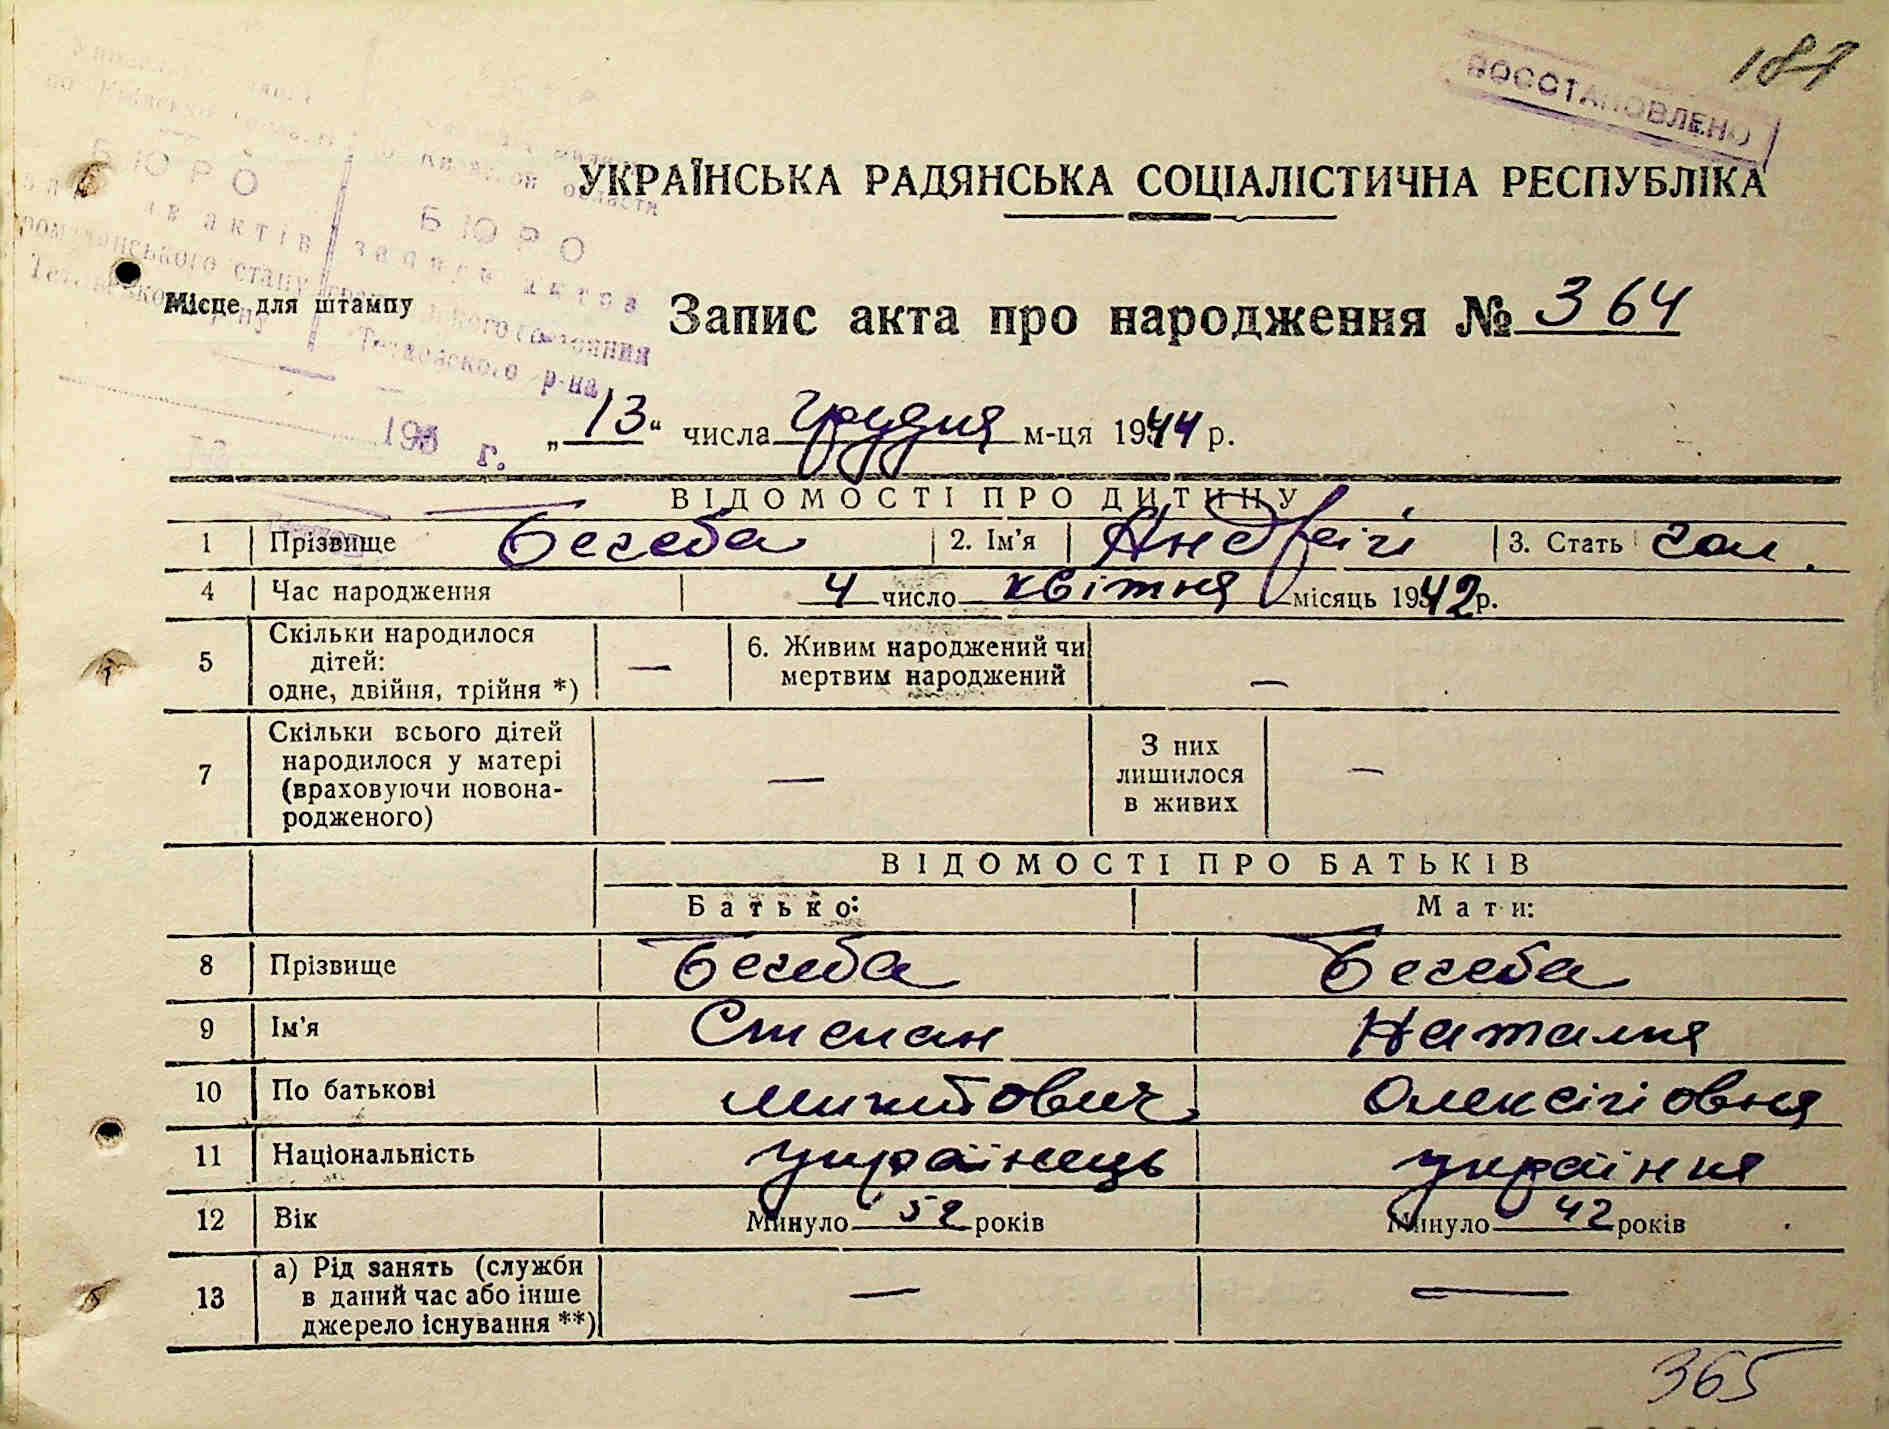 187
ВОССТАНОВЛЕНО
УКРАЇНСЬКА РАДЯНСЬКА СОЦІАЛІСТИЧНА РЕСПУБЛІКА
БЮРО
БЮРО
области
актів
записи актов
громадянського стану
Тетіївського
р-ну
Тетиевского р-на
Місце для штампу
Запис акта про народження № 364
„13“ числа грудня м-ця 1944 р.
195 г.
ВІДОМОСТІ ПРО ДИТИНУ
1 Прізвище Бегеба 2. Ім'я Андрій 3. Стать чол.
4 Час народження 4 число квітня місяць 1942 р.
5 Скільки народилося дітей: одне, двійня, трійня *) — 6. Живим народжений чи мертвим народжений —
7 Скільки всього дітей народилося у матері (враховуючи новонародженого) — З них лишилося в живих —
ВІДОМОСТІ ПРО БАТЬКІВ
Батько: Мати:
8 Прізвище Бегеба Бегеба
9 Ім'я Степан Наталія
10 По батькові Олексіївня
11 Національність українець українка
12 Вік Минуло 52 років Минуло 42 років
13 а) Рід занять (служби в даний час або інше джерело існування **) — —
365